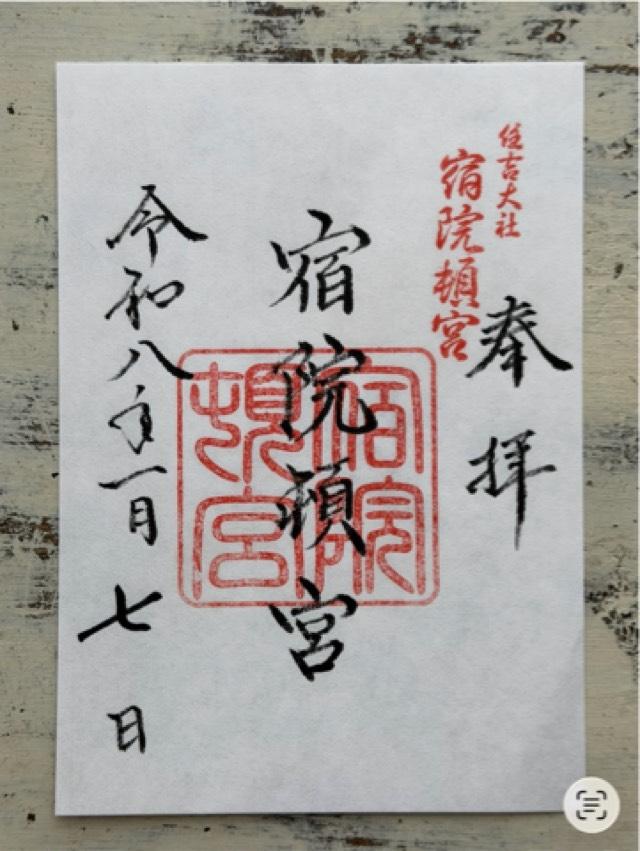 住吉大社
宿院頓宮
奉拝
宿院頓宮
宿院
頓宮
令和八年一月七日